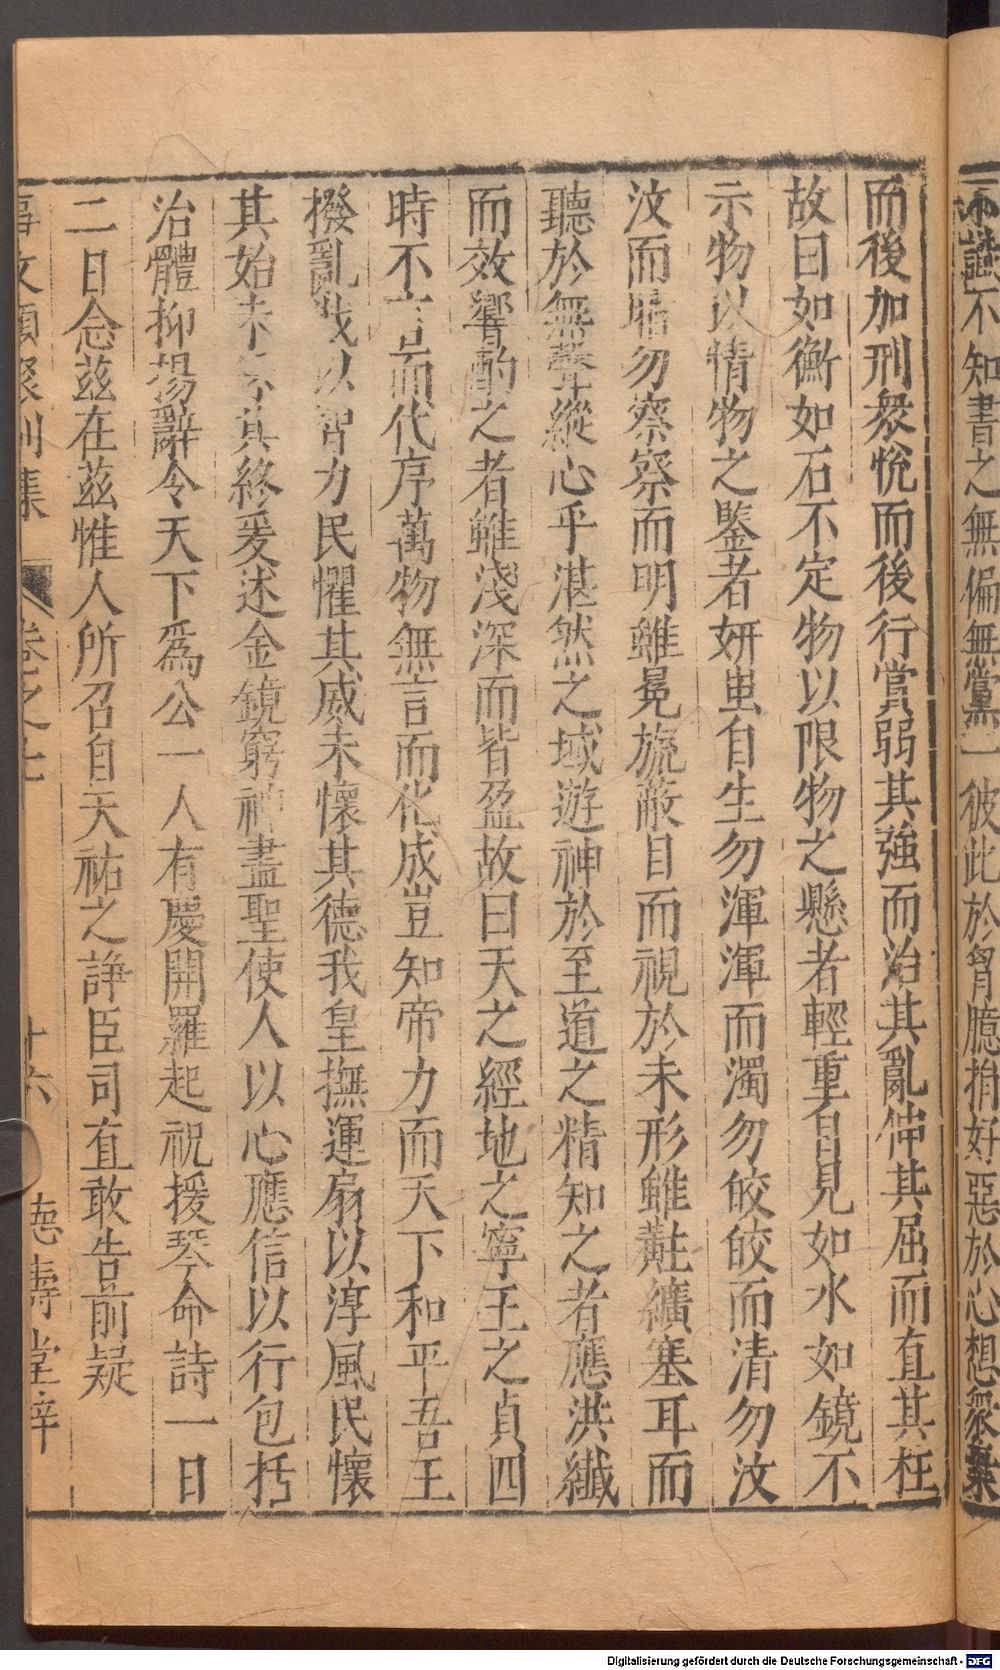 不知書之無偏無黨一彼此於胷臆捐好惡於心想衆棄
而後加刑衆悅而後行賞弱其強而治其亂伸其屈而直其枉
故曰如衡如石不定物以限物之懸者輕重自見如水如鏡不
示物以情物之鑒者妍蚩自生勿渾渾而濁勿皎皎而清勿汶
汶而暗勿察察而明雖冕旒蔽目而視於未形雖黈纊塞耳而
聽於無聲縱心乎湛然之域遊神於至道之精知之者應洪纖
而效響酌之者雖淺深而皆盈故曰天之經地之寧王之貞四
時不言而代序萬物無言而化成豈知帝力而天下和平吾王
撥亂戡以智力民懼其威未懷其德我皇撫運扇以淳風民懷
其始未保其終爰述金鏡窮神盡聖使人以心應信以行包括
治體抑揚辭令天下爲公一人有慶開羅起祝援琴命詩一日
二日念茲在茲惟人所召自天祐之諍臣司直敢告前疑
事文類聚別集 卷之十 十六 德壽堂梓
Digitalisierung gefördert durch die Deutsche Forschungsgemeinschaft - DFG